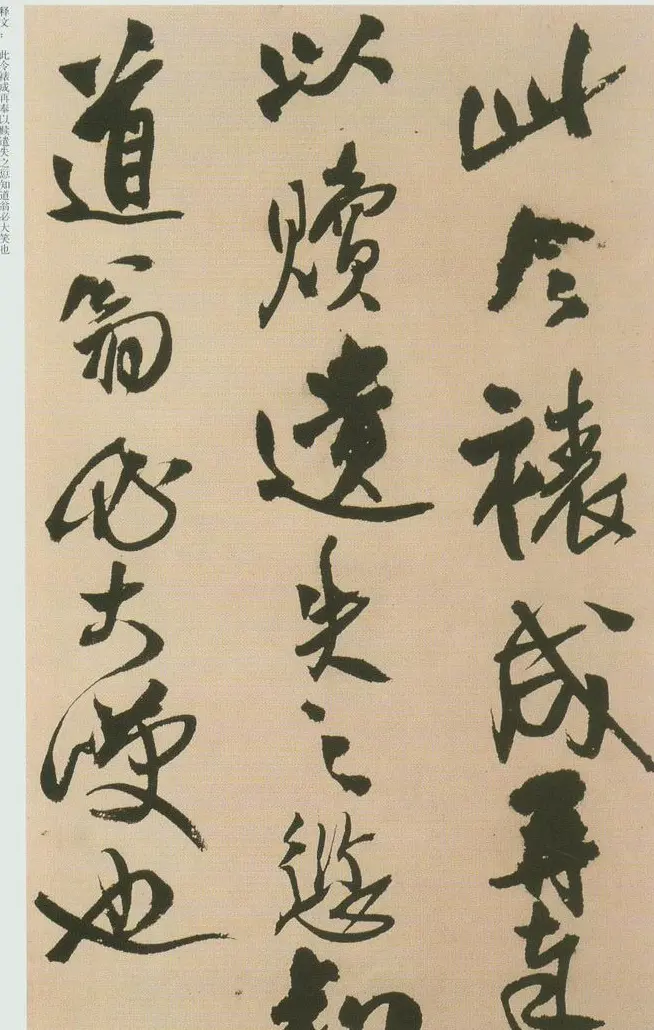 此令裱成再奉
以贖遺失之愆知
道翁必大也
释文：此令裱成再奉以赎遗失之愆知道翁必大笑也